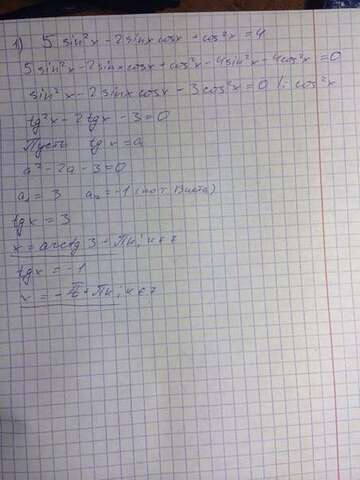 1) 5 sin²x - 2 sinx cosx + cos²x = 4
5 sin²x - 2 sinx cosx + cos²x - 4 sin²x + 4 cos²x = 0
sin²x - 2 sinx cosx - 3 cos²x = 0 | : cos²x
tg²x - 2 tgx - 3 = 0
Пусть tg x = a
a² - 2a - 3 = 0
a₁ = 3 a₂ = -1 (по т. Виета)
tgx = 3
x = arctg 3 + Пк; к є z
tgx = -1
x = - П/4 + Пк; к є z